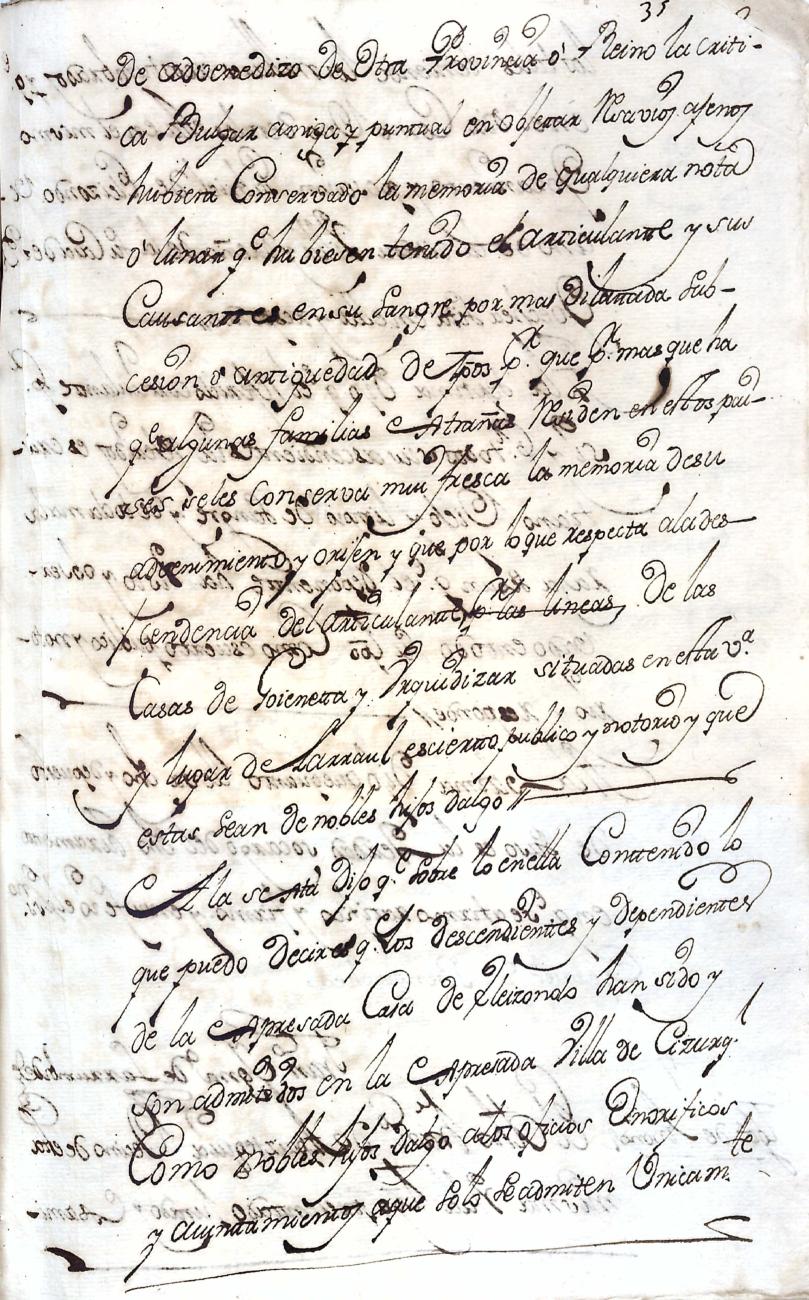 35
de advenedizo de otra Provincia ó Reino la criti-
ca Bulgar amiga y puntual en obserbar Resavios ajenos
hubiera Conservado la memoria de qualquiera nota
ó lunar q.e hubiesen tenido el articulante y sus
Causantes en su sangre por mas dilattada sub-
cesion ó antiguedad de tpos p.r que p.r mas que ha
q.e algunas familias extrañas Residen en estos pai-
ses, se les conserva mui fresca la memoria de su
advenimiento y orijen y que por lo que respecta a la des-
cendencia del articulante p.r las lineas de las
Casas de Goienetta y Yrquidizar situadas en esta v.a
y lugar de Larraul es cierto publico y notorio y que
estas sean de nobles hijos dalgo //
A la sexta dijo q.e sobre lo en ella Conttenido lo
que puedo decir es q.e los descendientes y dependientes
de la expresada Casa de Eleizondo han sido y
son admitidos en la expresada Villa de Cizurq.l
Como nobles hijos dalgo a los oficios onorificos
y aiuntamientos a que solo se admiten Unicam.te